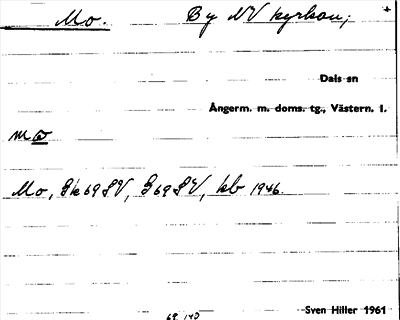 Mo. By NV kyrkan;
Dals sn
Ångerm. m. doms. tg., Västern. l.
mω
Mo, Gk 69 SV, G 69 SV, kb 1946.
Sven Hiller 1961
69 140